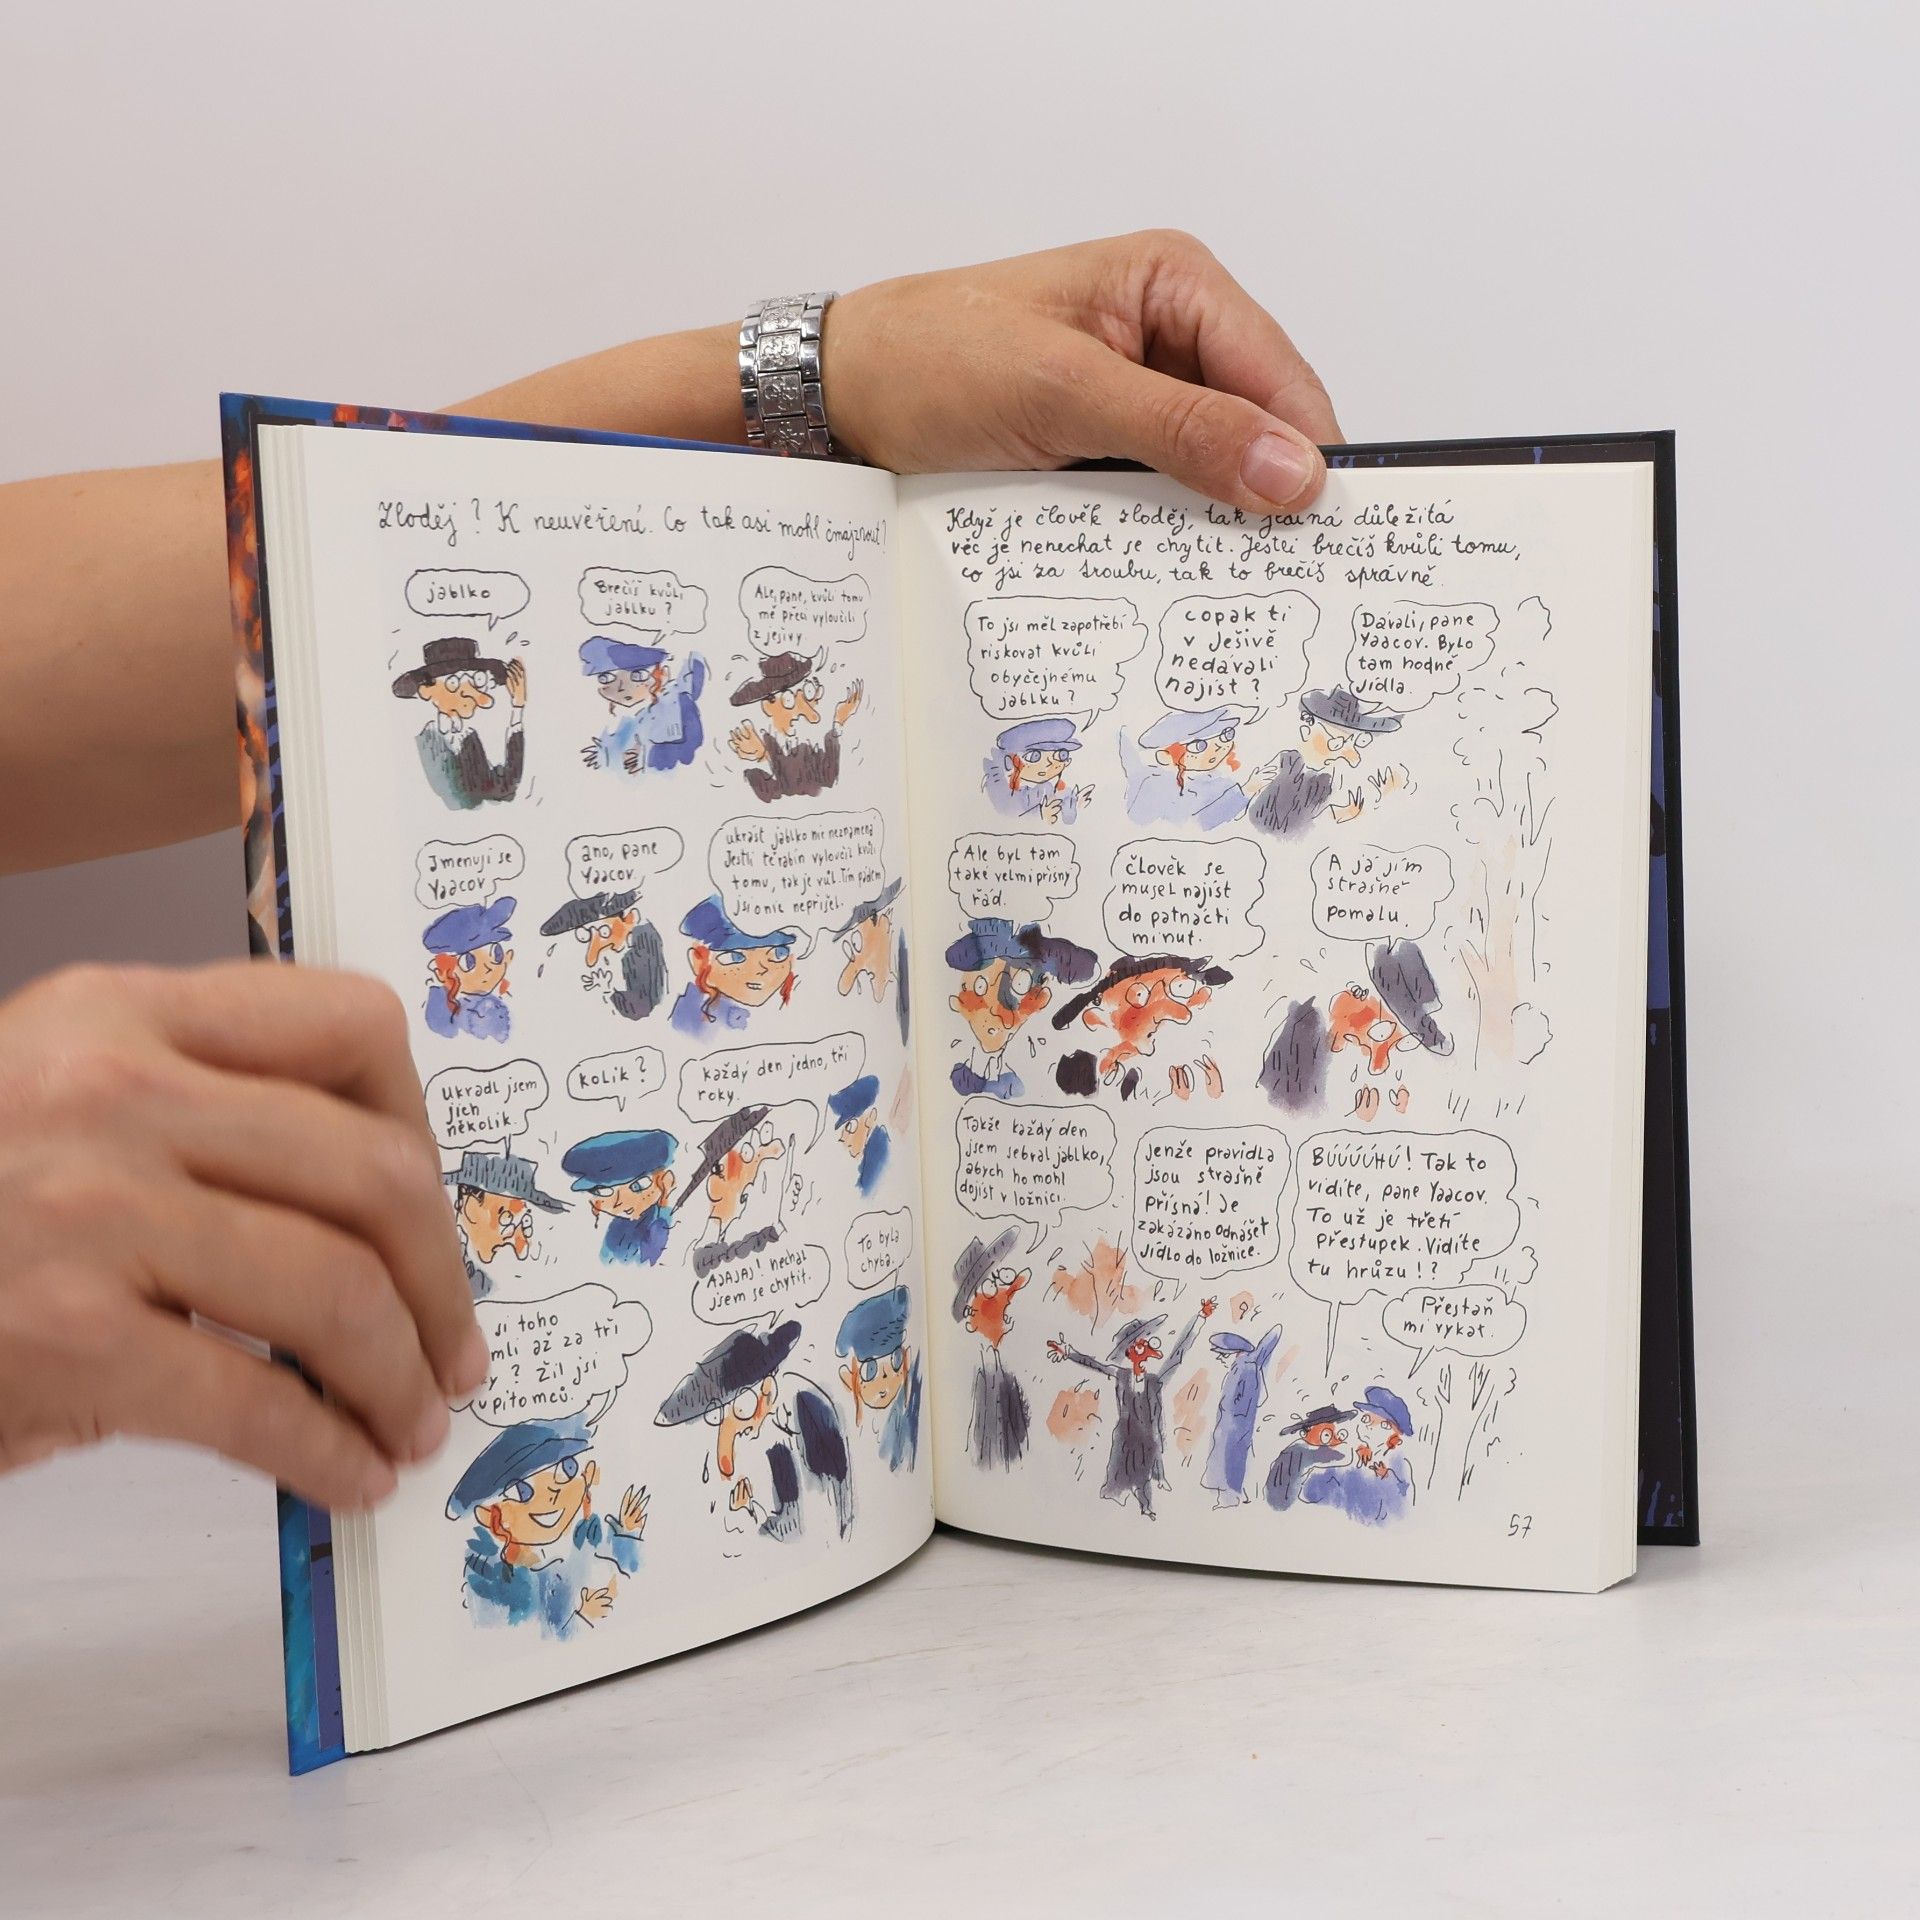 Zloděj? K neuvěření. Co tak asi mohl čmajznout?
jablko
Brečíš kvůli
jablku?
Ale, pane, kvůli tomu
mě přeci vyloučili
z ješivy.
Jmenuji se
Yaacov
ano, pane
Yaacov.
ukrást jablko nic neznamená
Jestli tě rabín vyloučil kvůli
tomu, tak je vůl. Tím pádem
jsi o nic nepřišel.
Ukradl jsem
jich
několik.
kolik?
každý den jedno, tři
roky.
si toho
mli až za tři
ky? Žil jsi
u pitomců.
AJAJAJ! nechal
jsem se chytit.
To byla
chyba.
Když je člověk zloděj, tak jediná důležitá
věc je nenechat se chytit. Jestli brečíš kvůli tomu,
co jsi za troubu, tak to brečíš správně.
To jsi měl zapotřebí
riskovat kvůli
obyčejnému
jablku?
copak ti
v Ješivě
nedávali
najíst?
Dávali, pane
Yaacov. Bylo
tam hodně
jídla.
Ale byl tam
také velmi přísný
řád.
člověk se
musel najíst
do patnácti
minut.
A já jím
strašně
pomalu.
Takže každý den
jsem sebral jablko,
abych ho mohl
dojíst v ložnici.
jenže pravidla
jsou strašně
přísná! Je
zakázáno odnášet
jídlo do ložnice.
BÚÚÚÚHÚ! Tak to
vidíte, pane Yaacov.
To už je třetí
přestupek. Vidíte
tu hrůzu!?
Přestaň
mi vykat.
57